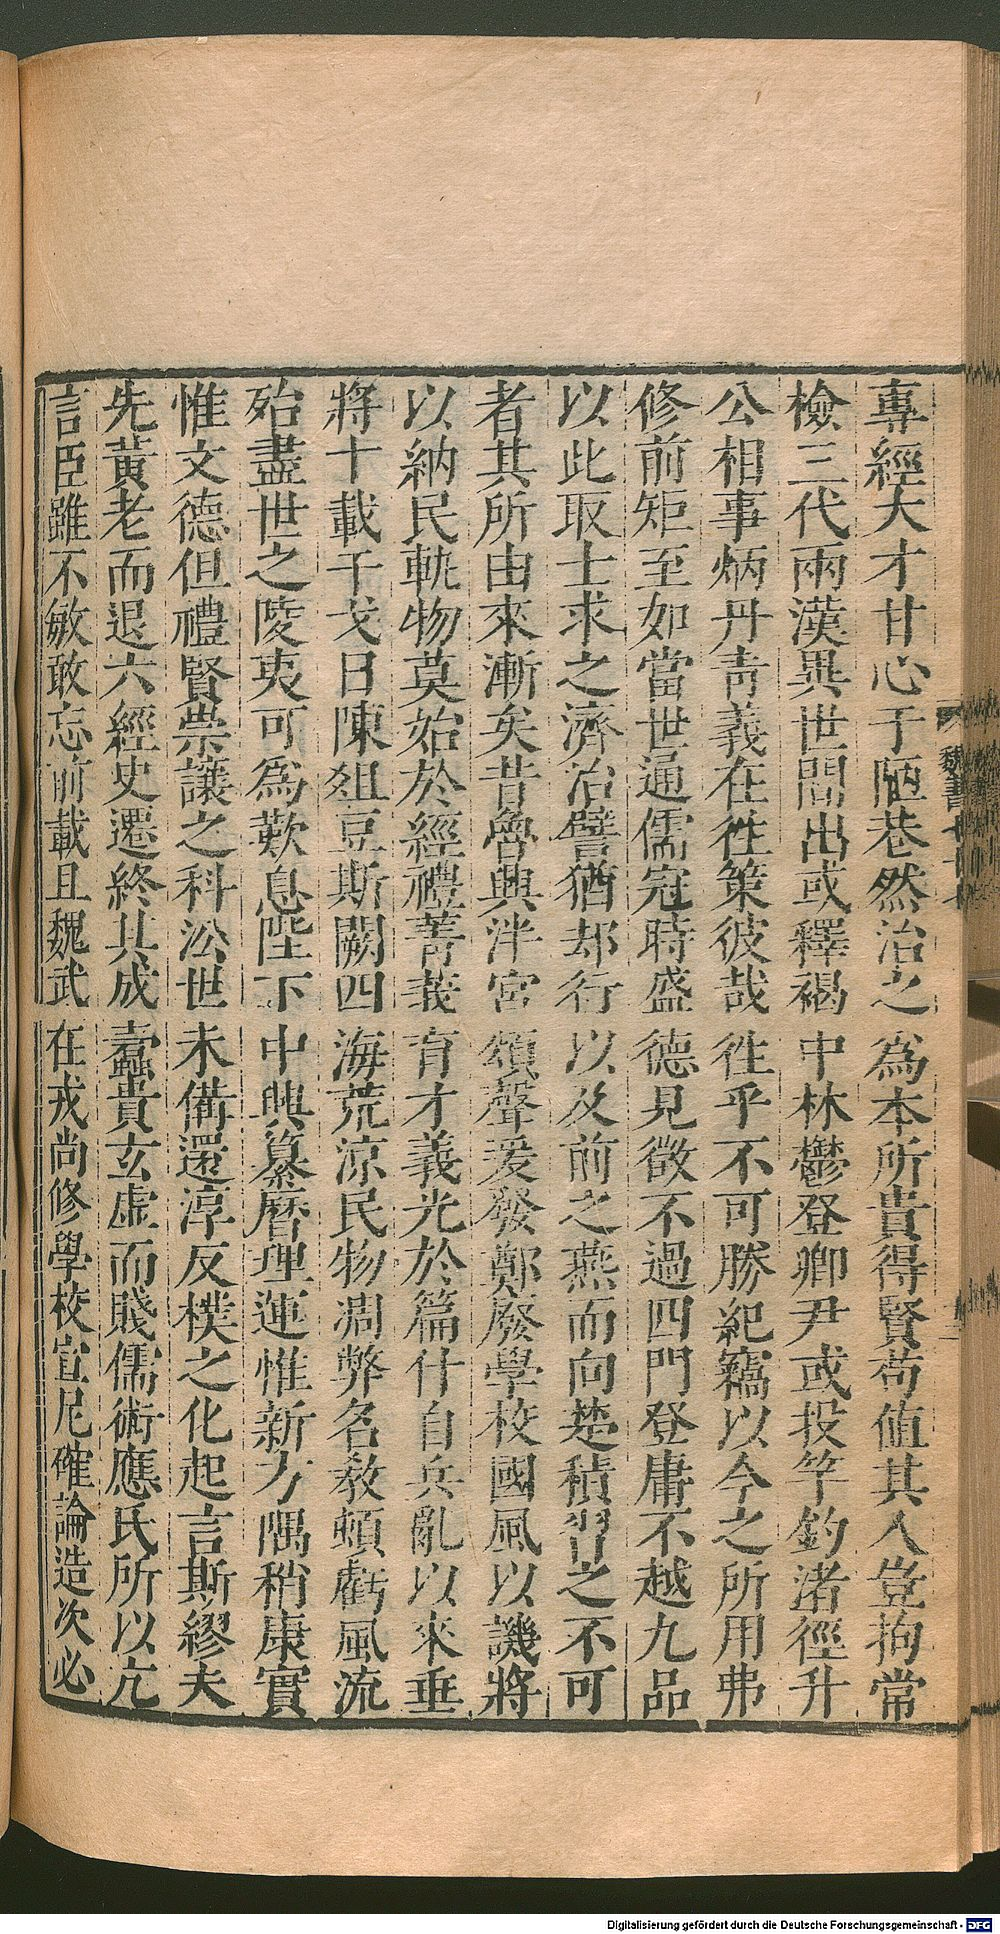 專經大才甘心于陋巷然治之爲本所貴得賢苟值其人豈拘常
檢三代兩漢異世間出或釋褐中林鬱登卿尹或投竿釣渚徑升
公相事炳丹青義在往策彼哉往乎不可勝紀竊以今之所用弗
修前矩至如當世通儒冠時盛德見徵不過四門登庸不越九品
以此取士求之濟治譬猶却行以及前之燕而向楚積習之不可
者其所由來漸矣昔魯興泮宮頌聲爰發鄭廢學校國風以譏將
以納民軌物莫始於經禮菁莪育才義光於篇什自兵亂以來垂
將十載干戈日陳俎豆斯闕四海荒涼民物凋弊名教頓虧風流
殆盡世之陵夷可爲歎息陛下中興纂曆理運惟新方隅稍康實
惟文德但禮賢崇讓之科沿世未備還淳反樸之化起言斯繆夫
先黃老而退六經史遷終其成蠹貴玄虛而賤儒術應氏所以亢
言臣雖不敏敢忘前載且魏武在戎尚修學校宣尼確論造次必
魏書
Digitalisierung gefördert durch die Deutsche Forschungsgemeinschaft - DFG